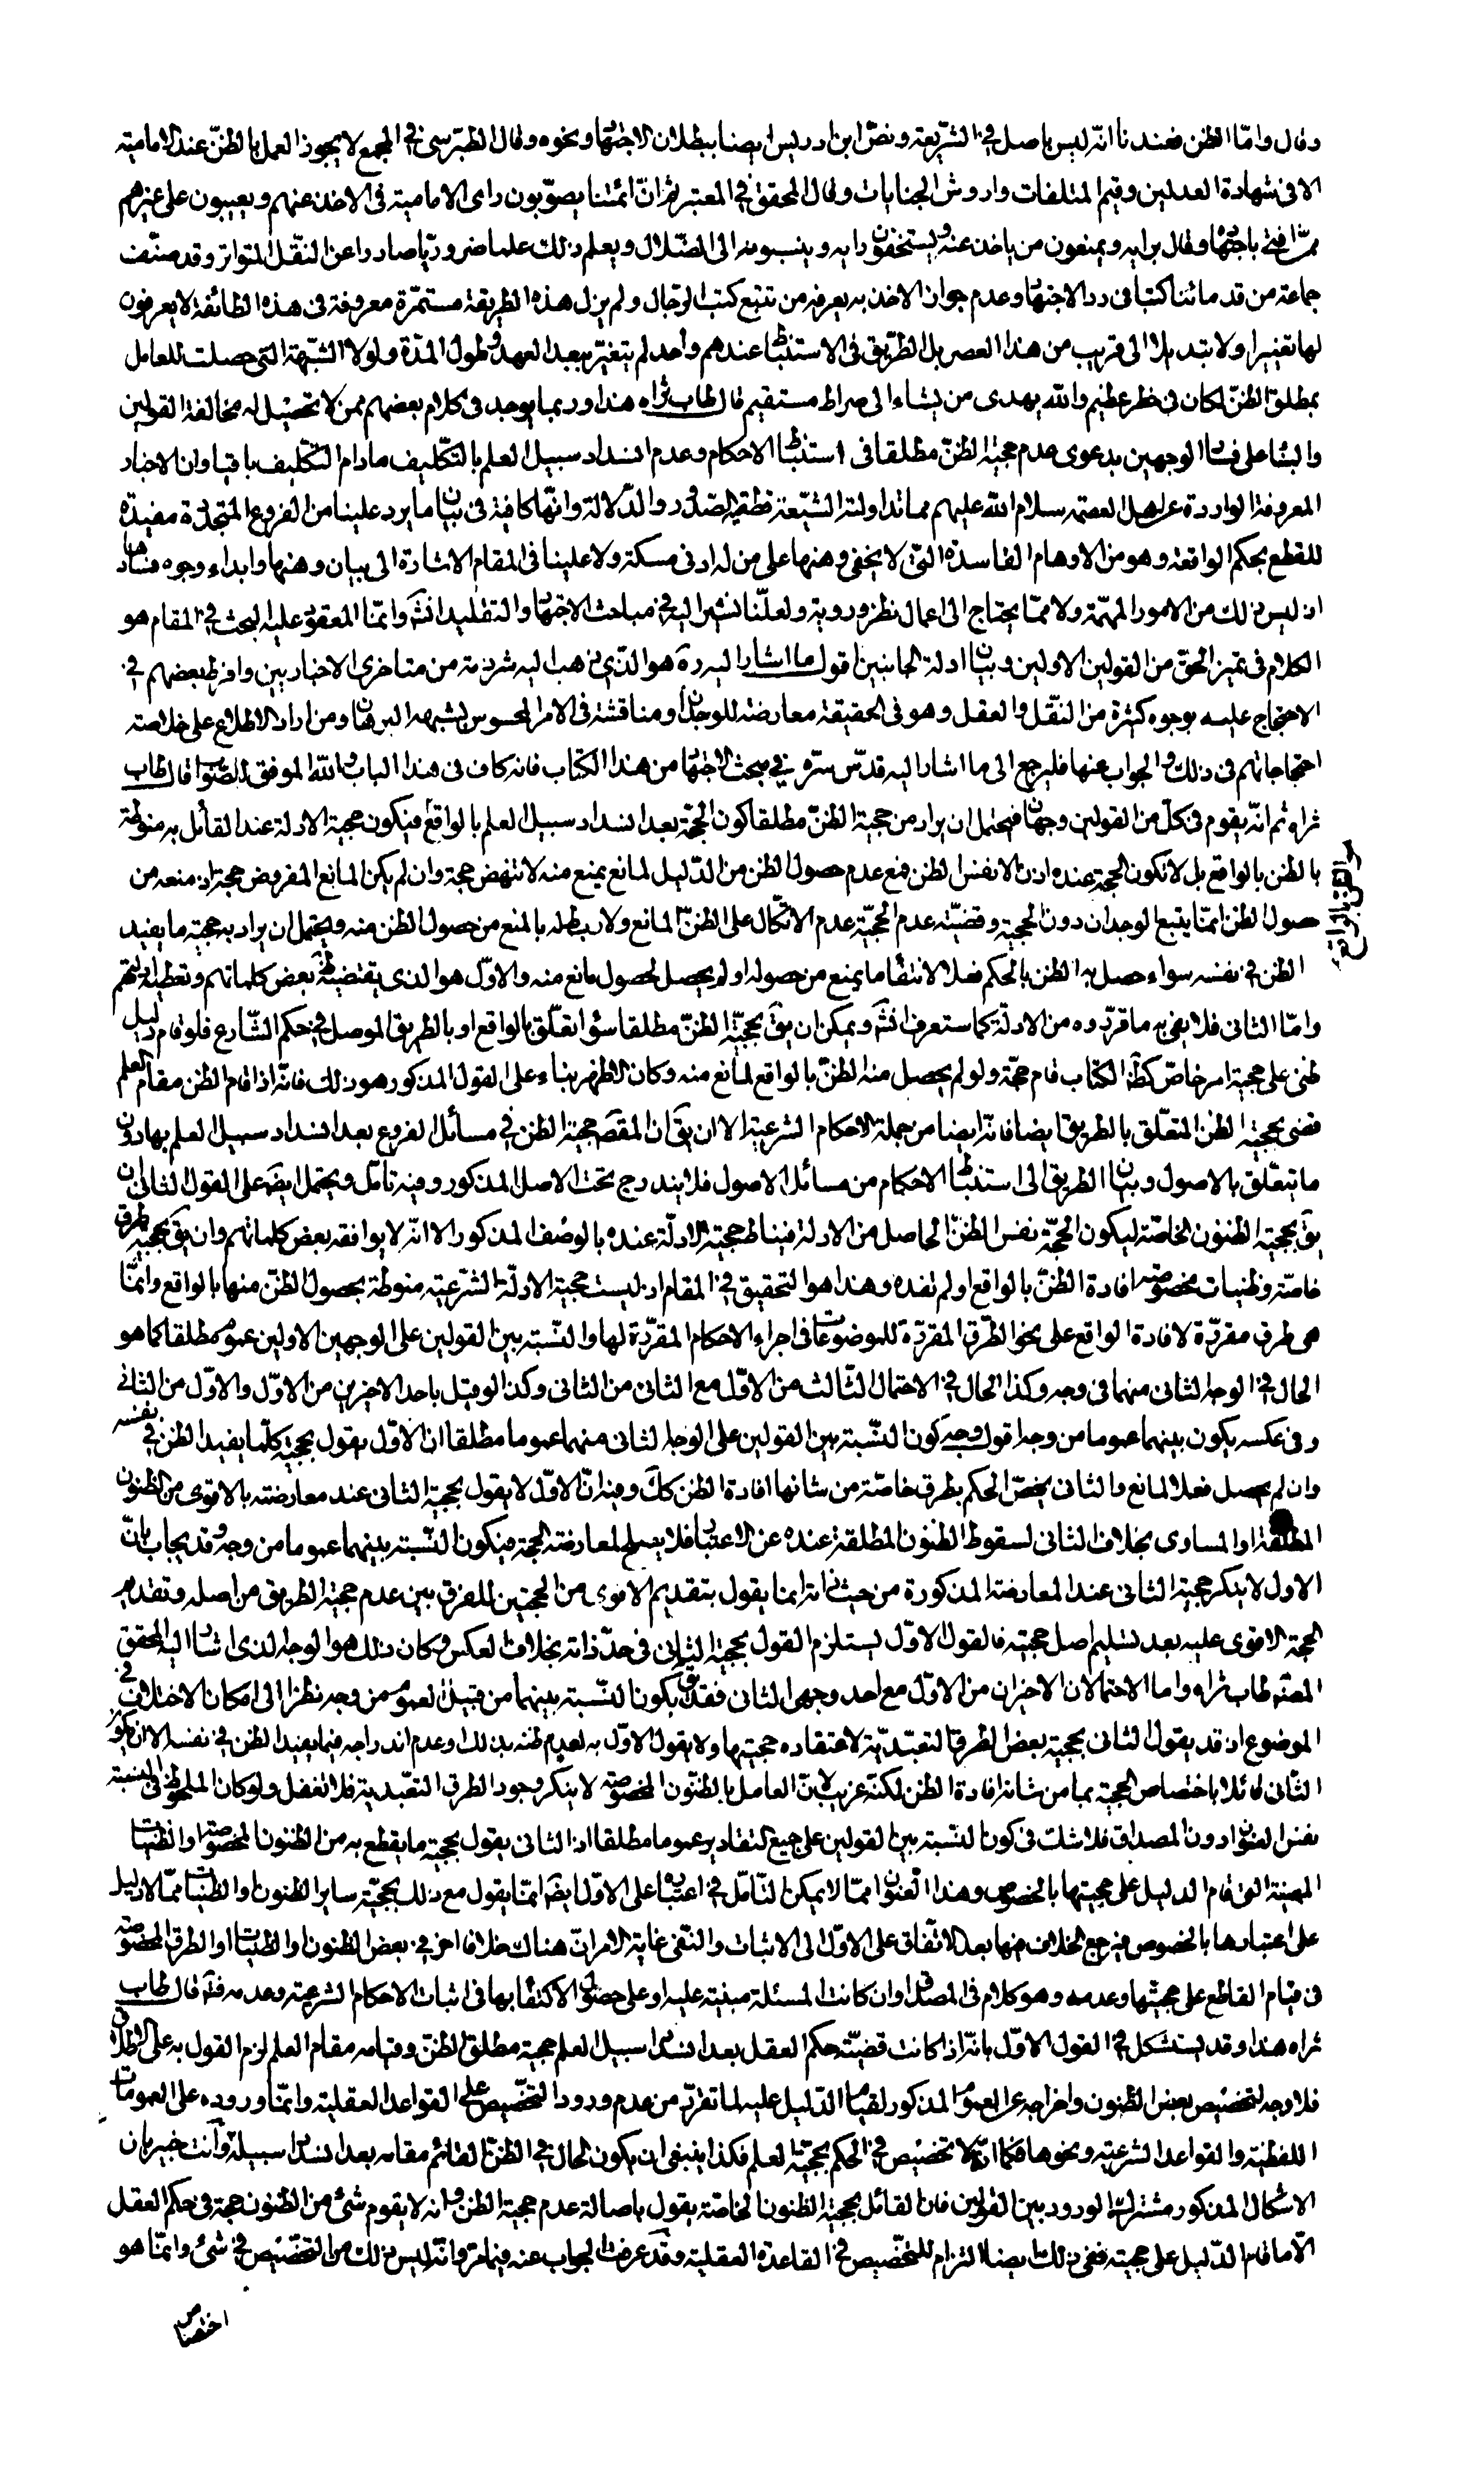 وقال واما الظن فعندنا انه ليس باصل في الشريعة ونص ابن ادريس ايضا ببطلان الاجتهاد ونحوه وقال الطبرسى في المجمع لا يجوز العمل بالظن عند الامامية
الا فى شهادة العدلين وقيم المتلفات واروش الجنايات وقال المحقق في المعتبر ثم ان ائمتنا يصوبون راى الامامية فى الاخذ عنهم ويعيبون على غيرهم
ممن افتى باجتهاده وقال برايه ويمنعون من ياخذ عنه ويستخفون رايه وينسبونه الى الضلال ويعلم ذلك علما ضروريا صادرا عن النقل المتواتر وقد صنف
جماعة من قدمائنا كتبا فى رد الاجتهاد وعدم جواز الاخذ به يعرفه من تتبع كتب الرجال ولم يزل هذه الطريقة مستمرة معروفة فى هذه الطائفة لا يعرفون
لها تغييرا ولا تبديلا الى قريب من هذا العصر بل الطريق فى الاستنباط عندهم واحد لم يتغير ببعد العهد وطول المدة ولولا الشبهة التى حصلت للعامل
بمطلق الظن لكان فى خطر عظيم والله يهدى من يشاء الى صراط مستقيم قال طاب ثراه هذا وربما يوجد فى كلام بعضهم ممن لا تحصيل له مخالفة القولين
والبناء على فساد الوجهين بدعوى عدم حجية الظن مطلقا فى استنباط الاحكام وعدم انسداد سبيل العلم بالتكليف ما دام التكليف باقيا وان الاخبار
المعروفة الواردة عن اهل العصمة سلام الله عليهم مما تداولته الشيعة قطعية الصدور والدلالة وانها كافية فى بيان ما يرد علينا من الفروع المتجددة مفيدة
للقطع بحكم الواقعة وهو من الاوهام الفاسدة التى لا يخفى وهنها على من له ادنى مسكة ولا علينا فى المقام الاشارة الى بيان وهنها وابداء وجوه فسادها
اذ ليس ذلك من الامور المهمة ولا مما يحتاج الى اعمال نظر وروية ولعلنا نشير اليه في مباحث الاجتهاد والتقليد انش وانما المعقود عليه البحث في المقام هو
الكلام فى تميز الحق من القولين الاولين وبيان ادلة الجانبين اقول ما اشار اليه ره هو الذى ذهب اليه شرذمة من متاخرى الاخباريين وافرط بعضهم في
الاحتجاج عليه بوجوه كثيرة من النقل والعقل وهو فى الحقيقة معارضة للوجدان ومناقشة فى الامر المحسوس بشبهة البرهان ومن اراد الاطلاع على خلاصة
احتجاجاتهم فى ذلك والجواب عنها فليرجع الى ما اشار اليه قدس سره في مبحث الاجتهاد من هذا الكتاب فانه كاف فى هذا الباب والله الموفق للصواب قال طاب
ثراه ثم انه يقوم فى كل من القولين وجهان فيحتمل ان يراد من حجية الظن مطلقا كون الحجة بعد انسداد سبيل العلم بالواقع فيكون حجية الادلة عند القائل به منوطة
بالظن بالواقع بل لا تكون الحجة عنده اذن الا نفس الظن فمع عدم حصول الظن من الدليل لمانع يمنع منه لا تنهض حجة وان لم يكن المانع المفروض حجة اذ منعه من
هو الظن بالواقع
حصول الظن انما يتبع الوجدان دون الحجية وقضية عدم الحجية عدم الاتكال على الظن المانع ولا ربط له بالمنع من حصول الظن منه ويحتمل ان يراد به حجية ما يفيد
الظن في نفسه سواء حصل به الظن بالحكم فعلا لانتفاء ما يمنع من حصوله او لم يحصل لحصول مانع منه والاول هو الذى يقتضيه بعض كلماتهم وتعطيه ادلتهم
واما الثانى فلا يفى به ما قرروه من الادلة كما ستعرف انش ويمكن ان يق بحجية الظن مطلقا سواء تعلق بالواقع او بالطريق الموصل في حكم الشارع فلو قام دليل
ظنى على حجية امر خاص كظ الكتاب قام حجة ولو لم يحصل منه الظن بالواقع لمانع منه وكان الاظهر بناء على القول المذكور هو ذلك فانه اذا قام الظن مقام العلم
قضى بحجية الظن المتعلق بالطريق ايضا فانه ايضا من جملة الاحكام الشرعية الا ان يق ان المقصم حجية الظن في مسائل الفروع بعد انسداد سبيل العلم بها دون
ما يتعلق بالاصول وبيان الطريق الى استنباط الاحكام من مسائل الاصول فلا يندرج تحت الاصل المذكور وفيه تامل ويحتمل ايضا على القول الثانى ان
يق بحجية الظنون الخاصة ليكون الحجة نفس الظن الحاصل من الادلة فيناط حجية الادلة عنده بالوصف المذكور الا انه لا يوافقه بعض كلماتهم وان يق بحجية طرق
خاصة وظنيات مخصوصة افادة الظن بالواقع او لم تفده وهذا هو التحقيق في المقام اذ ليست حجية الادلة الشرعية منوطة بحصول الظن منها بالواقع وانما
هى طرق مقررة لافادة الواقع على نحو الطرق المقررة للموضوعات فى اجراء الاحكام المقررة لها والنسبة بين القولين على الوجهين الاولين عموم مطلقا كما هو
الحال في الوجه الثانى منهما فى وجه وكذا الحال في الاحتمال الثالث من الاول مع الثانى من الثانى وكذا لو قيل باحد الاخيرين من الاول والاول من الثانى
وفى عكسه يكون بينهما عموما من وجه اقول وجه كون النسبة بين القولين على الوجه الثانى منهما عموما مطلقا ان الاول يقول بحجية كلما يفيد الظن في نفسه
وان لم يحصل فعلا لمانع والثانى يخص الحكم بطرق خاصة من شانها افادة الظن كك وفيه ان الاول لا يقول بحجية الثانى عند معارضته بالاقوى من الظنون
المطلقة او المساوى بخلاف الثانى لسقوط الظنون المطلقة عنده عن الاعتبار فلا يصلح لمعارضة الحجة فيكون النسبة بينهما عموما من وجه وقد يجاب بان
الاول لا ينكر حجية الثانى عند المعارضة المذكورة من حيث ذاته انما يقول بتقديم الاقوى من الحجتين للفرق بين عدم حجية الطريق من اصله وتقديم
الحجة الاقوى عليه بعد تسليم اصل حجيته فالقول الاول يستلزم القول بحجية الثانى فى حد ذاته بخلاف العكس وكان ذلك هو الوجه الذى اشار اليه المحقق
المصم طاب ثراه واما الاحتمالان الاخيران من الاول مع احد وجهى الثانى فقد يق بكون النسبة بينهما من قبيل العموم من وجه نظرا الى امكان الاختلاف في
الموضوع اذ قد يقول الثانى بحجية بعض الطرق التعبدية لاعتقاده حجيتها ولا يقول الاول به لعدم ظنه بذلك وعدم اندراجه فيما يفيد الظن في نفسه الا ان يكون
الثانى قائلا باختصاص الحجية بما من شانه افادة الظن لكنه غريب لان العامل بالظنون المخصوصة لا ينكر وجود الطرق التعبدية فلا تغفل ولو كان الملحوظ فى النسبة
نفس العنوان دون المصداق فلا شك فى كون النسبة بين القولين على جميع التقادير عموما مطلقا اذ الثانى يقول بحجية ما يقطع به من الظنون المخصوصة او الظنيات
المعينة التى قام الدليل على حجيتها بالخصوص وهذا العنوان مما لا يمكن التامل في اعتباره على الاول ايضا انما يقول مع ذلك بحجية ساير الظنون او الظنيات مما لا دليل
على اعتبارها بالخصوص فيرجع الخلاف فيها بعد الاتفاق على الاول الى الاثبات والنفى غاية الامر ان هناك خلافا اخر في بعض الظنون او الظنيات او الطرق المخصوصة
فى قيام القاطع على حجيتها وعدمه وهو كلام فى المصداق وان كانت المسئلة مبنية عليه او على حصول الاكتفاء بها فى اثبات الاحكام الشرعية وعدمه فتم قال طاب
ثراه هذا وقد يستشكل في القول الاول بانه اذا كانت قضية حكم العقل بعد انسداد سبيل العلم حجية مطلق الظن وقيامه مقام العلم لزم القول به على الاطلاق
فلا وجه لتخصيص بعض الظنون واخراجه عن العموم المذكور لقيام الدليل عليه لما تقرر من عدم ورود التخصيص على القواعد العقلية وانما وروده على العمومات
اللفظية والقواعد الشرعية ونحوها فكما انه لا تخصيص في الحكم بحجية العلم فكذا ينبغى ان يكون الحال في الظن القائم مقامه بعد انسداد سبيله وانت خبير بان
الاشكال المذكور مشترك الورود بين القولين فان القائل بحجية الظنون الخاصة يقول باصالة عدم حجية الظن وانه لا يقوم شئ من الظنون حجة فى حكم العقل
الا ما قام الدليل على حجيته ففى ذلك ايضا التزام للتخصيص في القاعدة العقلية وقد عرفت الجواب عنه فيما مر وانه ليس ذلك من التخصيص في شئ وانما هو
اختصاص